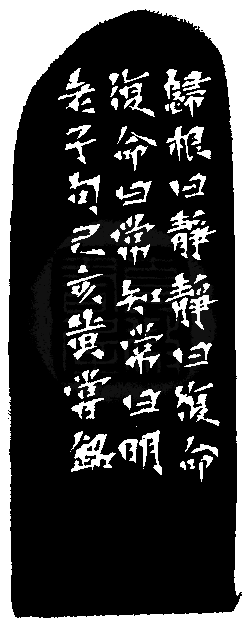 歸根曰靜靜曰復命
復命曰常知常曰明
老子句己亥黄嘗銘